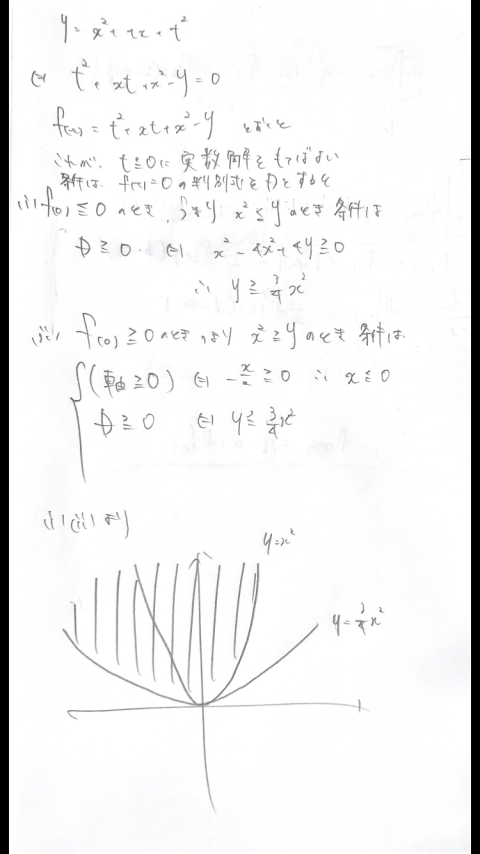 y = x² + tx + t²
⇔ t² + xt + x² - y = 0
f(t) = t² + xt + x² - y とおくと
これが、t ≧ 0に実数解をもてばよい
条件は f(t) = 0 の判別式をDとすると
(i) f(0) ≦ 0 のとき、つまり x² ≦ y のとき 条件は
D ≧ 0 ⇔ x² - 4x² + 4y ≧ 0
∴ y ≧ 3/4 x²
(ii) f(0) ≧ 0 のとき つまり x² ≧ y のとき 条件は
(軸 ≧ 0) ⇔ -x/2 ≧ 0 ∴ x ≦ 0
D ≧ 0 ⇔ y ≧ 3/4 x²
(i)(ii)より
y = x²
y = 3/4 x²